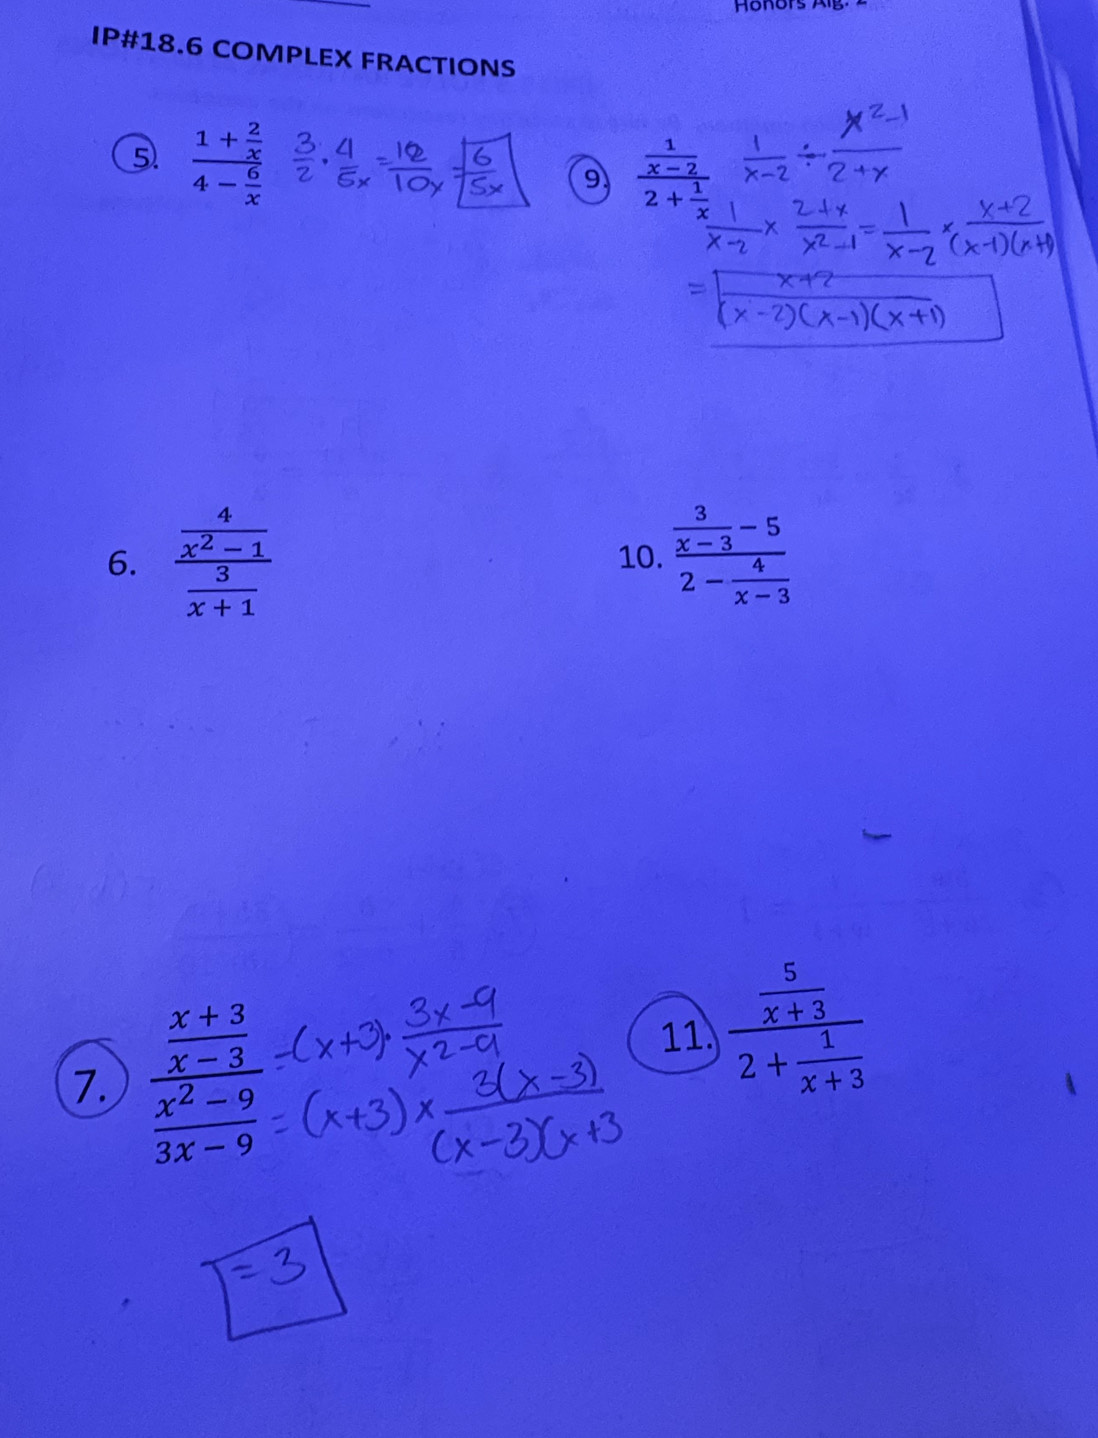 Honors Alg. 2
IP#18.6 COMPLEX FRACTIONS
5. (1 + 2/x)/(4 − 6/x) 3/2 · 4/5x = 12/10x = 6/5x
9. (1/(x − 2))/(2 + 1/x) 1/(x−2) ÷ (x²−1)/(2+x)
1/(x−2) × (2+x)/(x²−1) = 1/(x−2) × (x+2)/((x−1)(x+1)
= (x+2)/((x−2)(x−1)(x+1))
6. (4/(x² − 1))/(3/(x + 1))
10. (3/(x − 3) − 5)/(2 − 4/(x − 3))
7. ((x + 3)/(x − 3))/((x² − 9)/(3x − 9)) = (x+3) · (3x−9)/(x²−9)
= (x+3) × 3(x−3)/((x−3)(x+3
= 3
11. (5/(x + 3))/(2 + 1/(x + 3))